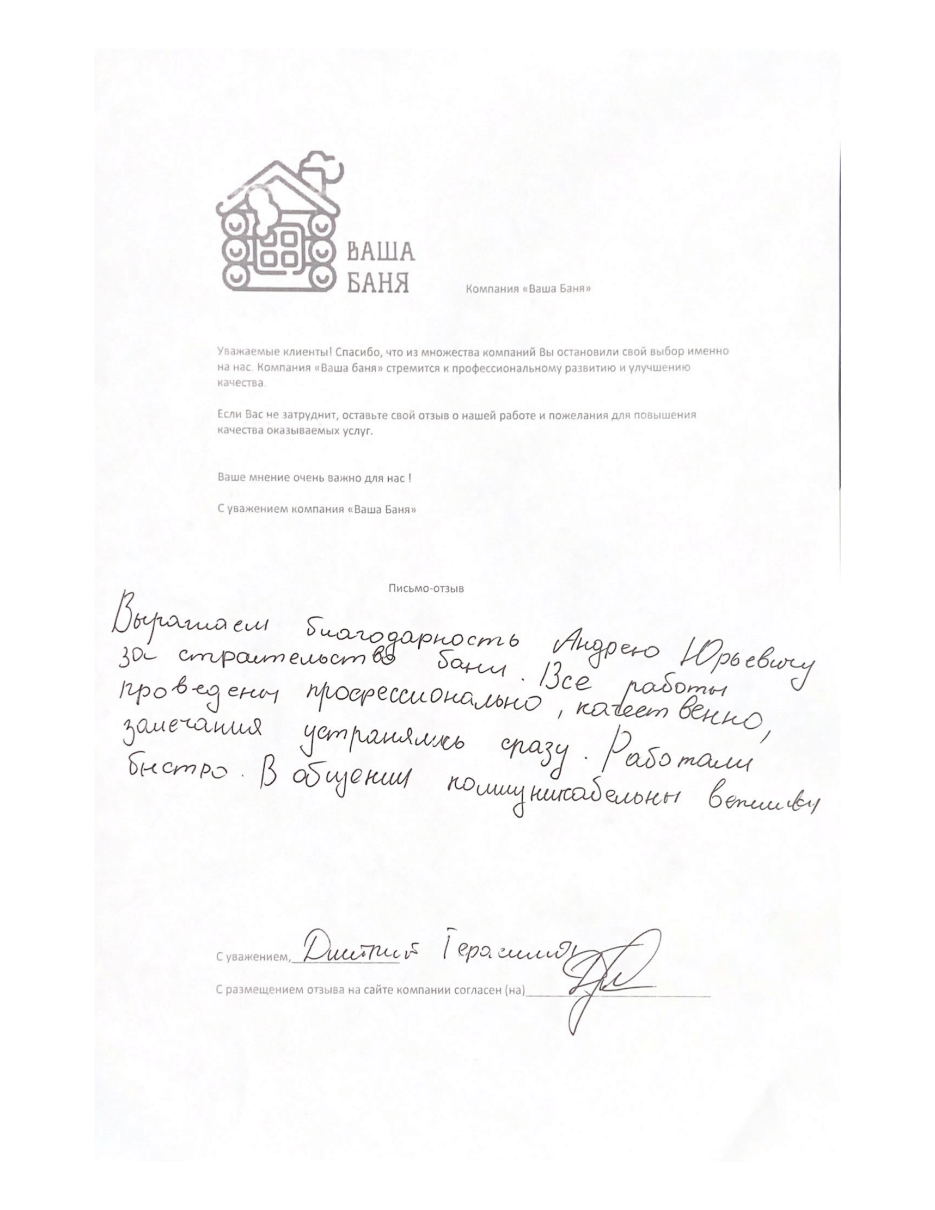 ВАША
БАНЯ
Компания «Ваша Баня»
Уважаемые клиенты! Спасибо, что из множества компаний Вы остановили свой выбор именно
на нас. Компания «Ваша баня» стремится к профессиональному развитию и улучшению
качества.
Если Вас не затруднит, оставьте свой отзыв о нашей работе и пожелания для повышения
качества оказываемых услуг.
Ваше мнение очень важно для нас !
С уважением компания «Ваша Баня»
Письмо-отзыв
Выражаем благодарность Андрею Юрьевичу
за строительство бани. Все работы
проведены профессионально, качественно,
замечания устранялись сразу. Работали
быстро. В общении коммуникабельны вежливы
С уважением, Дмитрий
С размещением отзыва на сайте компании согласен (на)